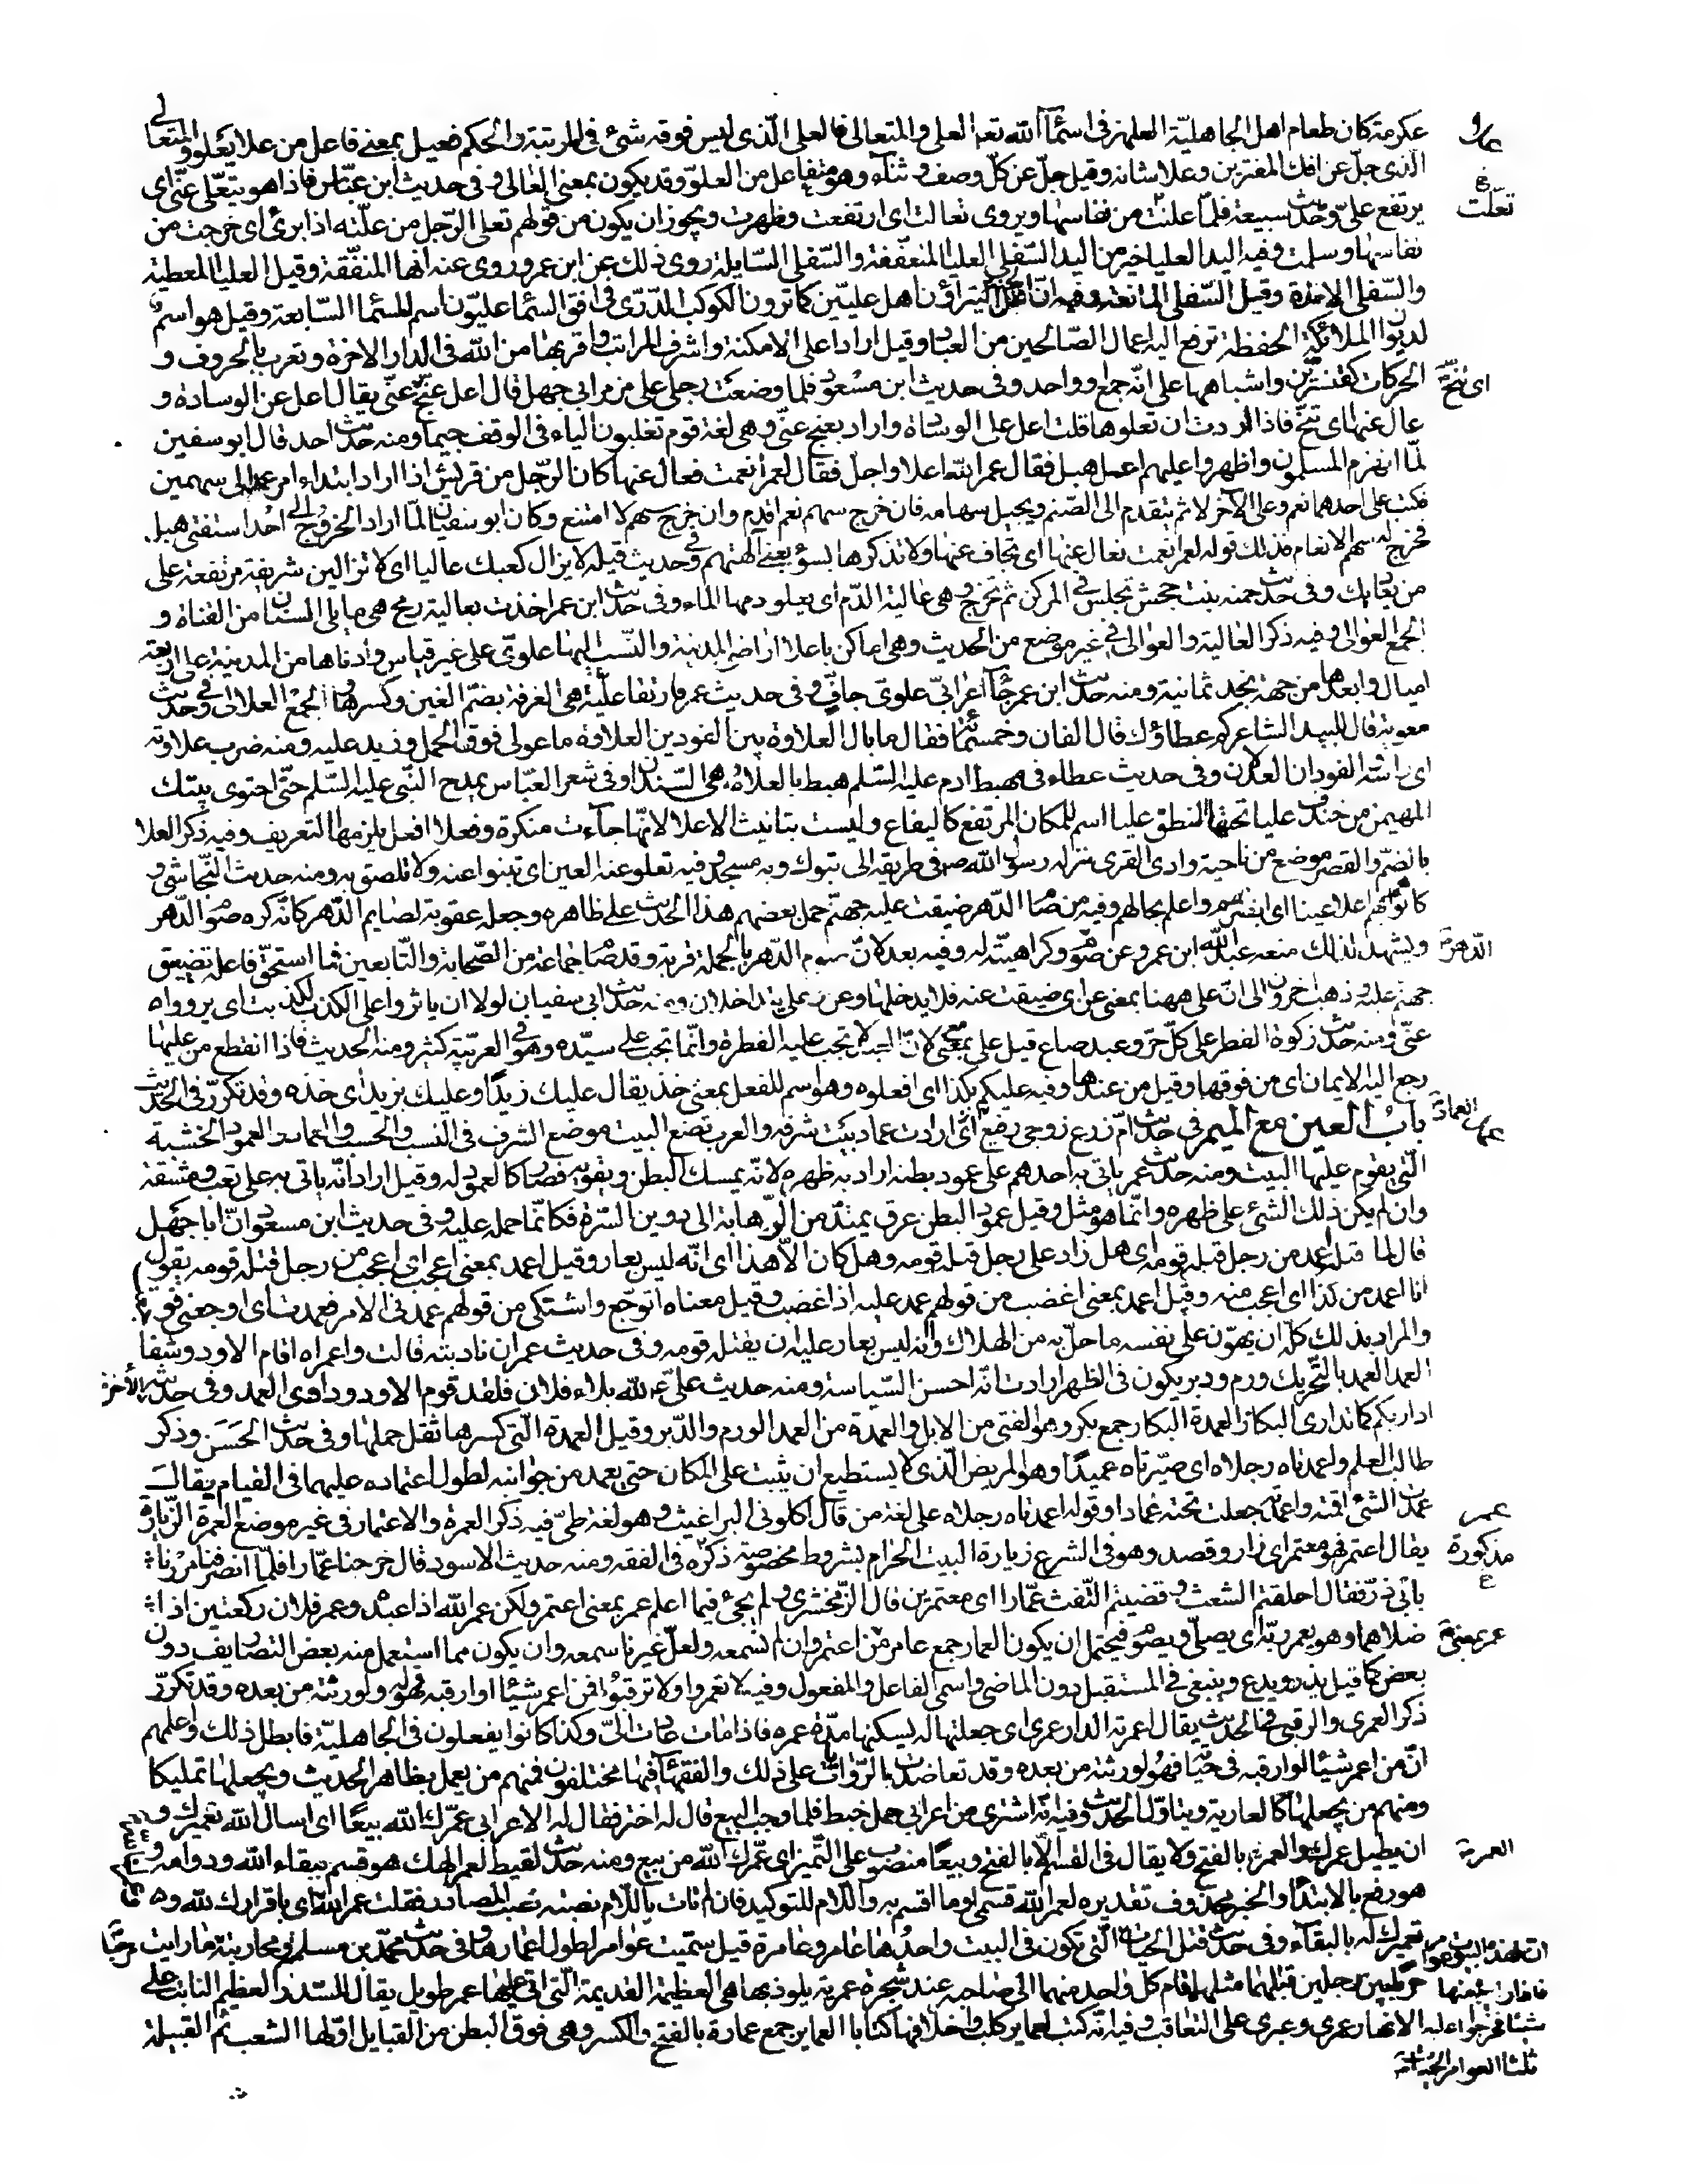 عكرمة كان طعام اهل الجاهليّة العلهز فى اسمآء الله تعه العلى والمتعالى فالعلى الّذى ليس فوقه شئ فى المرتبة والحكم فعيل بمعنى فاعل من علا يعلو والمتعالى
علو
الذى جلّ عن افك المفترين وعلا شانه وقيل جلّ عن كلّ وصف وثنآء وهو متفاعل من العلوّ وقد يكون بمعنى العالى وفى حديث ابن عبّاس فاذا هو يتعلّى عنّى اى
يرتفع علىّ وحديث سبيعة فلمّا تعلّت من نفاسها ويروى تعالت اى ارتفعت وظهرت ويجوز ان يكون من قولهم تعلى الرّجل من علّته اذا برئ اى خرجت من
تعلّت
نفاسها وسلمت وفيه اليد العليا خير من اليد السّفلى العليا المتعفّفة والسّفلى السّايلة روى ذلك عن ابن عمر وروى عنه انها المنفقة وقيل العليا المعطية
والسّفلى الاخذة وقيل السّفلى المانعة وفيه انّ اهل الجنّة ليتراؤن اهل عليّين كما ترون الكوكب الدّرّى فى افق السّما عليّون اسم للسّماء السّابعة وقيل هو اسم
لديوان الملائكة الحفظة ترفع اليه اعمال الصّالحين من العباد وقيل اراد اعلى الامكنة واشرف المراتب واقربها من الله فى الدار الاخرة وتعرب بالحروف و
الحركات كقنسّرين واشباهها على انّه جمع او واحد وفى حديث ابن مسعود فلما وضعت رجلى على مزمر ابى جهل قال اعل عنّج عنّى يقال اعل عن الوسادة و
اى تنحّ
عال عنها اى تنحّ فاذا اردت ان تعلوها قلت اعل على الوسادة واراد بعنج عنّى وهى لغة قوم تقلبون الياء فى الوقف جيما ومنه حديث احد قال ابو سفين
لمّا انهزم المسلمون واظهروا عليهم اعل هبل فقال عمر الله اعلا واجل فقال لعمر انعمت فعال عنها كان الرّجل من قريش اذا اراد ابتداء امر عمد الى سهمين
فكتب على احدهما نعم وعلى الآخر لا ثم يتقدم الى الصّنم ويجيل سهامه فان خرج سهم نعم اقدم وان خرج سهم لا امتنع وكان ابو سفيان لمّا اراد الخروج الى احد استفتى هبل
فخرج له سهم الانعام فذلك قوله لعمر انعمت فعال عنها اى تجاف عنها ولا تذكرها بسوء يعنى الهتهم وفى حديث قيلة لا يزال كعبك عاليا اى لا تزالين شريفة مرتفعة على
من يعاديك وفى حديث حمنة بنت جحش تجلس فى المركن ثم تخرج وهى عالية الدّم اى يعلو دمها الماء وفى حديث ابن عمر اخذت بعالية رمح هى ما يلى السنان من القناة و
الجمع العوالى وفيه ذكر العالية والعوالى فى غير موضع من الحديث وهى اماكن باعلا اراضى المدينة والنّسب اليها علوىّ على غير قياس وادناها من المدينة على اربعة
اميال وابعدها من جهة نجد ثمانية ومنه حديث ابن عمر جآء اعرابىّ علوىّ جافّ وفى حديث عمر فارتقا علّيّة هى الغرفة بضمّ العين وكسرها والجمع العلالى وفى حديث
معوية قال للبيد الشاعر كم عطاؤك قال الفان وخمسمئة فقال ما بال العلاوة بين الفودين العلاوة ما عولى فوق الحمل وزيد عليه ومنه ضرب علاوته
اى راسه الفودان العدلان وفى حديث عطاء فى مهبط ادم عليه السّلم هبط بالعلاة وهى السّندان وفى شعر العبّاس يمدح النّبى عليه السّلم حتّى احتوى بيتك
المهيمن من خندف عليا تحتها النطق عليا اسم للمكان المرتفع كاليفاع وليست بتانيث الاعلا لانّها جاءت منكرة وفعلا افعل يلزمها التعريف وفيه ذكر العلا
بالضمّ والقصر موضع من ناحية وادى القرى نزله رسول الله صه فى طريقه الى تبوك وبه مسجد وفيه تعلو عنه العين اى تنبوا عنه ولا تلصق به ومنه حديث النّجاشى و
كانوا بهم اعلا عينا اى ابصر بهم واعلم بحالهم وفيه من صام الدّهر ضيقت عليه جهنّم حمل بعضهم هذا الحديث على ظاهره وجعله عقوبة لصايم الدّهر كانّه كره صوم الدّهر
ويشهد لذلك منعه عبد الله ابن عمرو عن صوم وكراهيّته له وفيه بعد لانّ صوم الدّهر بالجملة قربة وقد صام جماعة من الصّحابة والتّابعين فما استحقّ فاعله تضييق
الدّهر
جهنم عليه وذهب آخرون الى انّ على ههنا بمعنى عن اى ضيقت عنه فلا يدخلها وعن وعلى يتداخلان ومنه حديث ابى سفيان لولا ان ياثروا على الكذب لكذبت اى يرووه
عنّى ومنه حديث زكوة الفطر على كلّ حرّ وعبد صاع قيل على بمعنى عن لانّ العبد لا تجب عليه الفطرة وانّما تجب على سيّده وهو فى العربيّة كثير ومنه الحديث فاذا انقطع من عليها
رجع اليه الايمان اى من فوقها وقيل من عندها وفيه عليكم بكذا اى افعلوه وهو اسم للفعل بمعنى خذ يقال عليك زيدًا وعليك بزيد اى خذه وقد تكرّر فى الحديث
باب العين مع الميم فى حديث امّ زرع زوجى رفيع العماد ارادت عماد بيت شرفه والعرب تضع البيت موضع الشرف فى النسب والحسب والعماد والعمود الخشبة
عمد العماد
الّتى يقوم عليها البيت ومنه حديث عمر ياتى به احدهم على عمود بطنه اراد به ظهره لانّه يمسك البطن ويقويه فصار كالعمود له وقيل اراد انّه ياتى به على تعب ومشقة
وان لم يكن ذلك الشئ على ظهره وانّما هو مثل وقيل عمود البطن عرق يمتدّ من الرّهابة الى دوين السّرّة فكانّما حمله عليه وفى حديث ابن مسعود انّ ابا جهل
قال لما قتله اعمد من رجل قتله قومه اى هل زاد على رجل قتله قومه وهل كان الّا هذا اى انّه ليس بعار وقيل اعمد بمعنى اعجب اى اعجب من رجل قتله قومه يقول
انا اعمد من كذا اى اعجب منه وقيل اعمد بمعنى اغضب من قولهم عمد عليه اذا غضب وقيل معناه اتوجّع واشتكى من قولهم عمدنى الامر فعمدت اى اوجعنى فوجعت
والمراد بذلك كلّه ان يهوّن على نفسه ما حلّ به من الهلاك وانه ليس بعار عليه ان يقتله قومه وفى حديث عمر ان نادبته قالت واعمراه اقام الاود وشفا
العمد العمد بالتّحريك ورم ودبر يكون فى الظهر ارادت انّه احسن السّياسة ومنه حديث علىّ لله بلاء فلان فلقد قوم الاود وداوى العمد وفى حديثه الآخر كم
اداريكم كما تدارى البكار العمدة البكار جمع بكر وهو الفتى من الابل والعمدة من العمد الورم والدّبر وقيل العمدة الّتى كسرها ثقل حملها وفى حديث الحسن وذكر
طالب العلم واعمدتاه رجلاه اى صيّرتاه عميدًا وهو المريض الّذى لا يستطيع ان يثبت على المكان حتى يعمد من جوانبه لطول اعتماده عليهما فى القيام يقال
عمدت الشئ اقمته واعمدته جعلت تحته عمادا وقوله اعمدتاه رجلاه على لغة من قال اكلونى البراغيث وهو لغة طىّ فيه ذكر العمرة والاعتمار فى غير موضع العمرة الزّيارة
عمر
يقال اعتمر فهو معتمر اى زار وقصد وهو فى الشرع زيارة البيت الحرام بشروط مخصوصة مذكورة فى الفقه ومنه حديث الاسود قال خرجنا عمّارا فلمّا انصرفنا مررنا
مذكورة
بابى ذرّ فقال احلقتم الشعث وقضيتم التّفث عمّارا اى معتمرين قال الزّمخشرى ولم يجئ فيما اعلم عمر بمعنى اعتمر ولكن عمر الله اذا عبده وعمر فلان ركعتين اذا
صلاهما وهو يعمر ربّه اى يصلّى ويصوم فيحتمل ان يكون العمار جمع عامر من عمر بمعنى اعتمر وان لم نسمعه ولعلّ غيرنا سمعه وان يكون مما استعمل منه بعض التصاريف دون
عمر بمعنى
بعض كما قيل يذر ويدع وينبغى فى المستقبل دون الماضى واسمى الفاعل والمفعول وفيه لا تعمروا ولا ترقبوا فمن اعمر شيئا او ارقبه فهو له ولورثته من بعده وقد تكرّر
ذكر العمرى والرقبى فى الحديث يقال اعمرته الدار عمرى اى جعلتها له يسكنها مدّة عمره فاذا مات عادت الىّ وكذا كانوا يفعلون فى الجاهليّة فابطل ذلك واعلمهم
انّ من اعمر شيئا او ارقبه فى حيٰوته فهو لورثته من بعده وقد تعاضدت الرّوايات على ذلك والفقهاء فيها مختلفون فمنهم من يعمل بظاهر الحديث ويجعلها تمليكا
ومنهم من يجعلها كالعارية ويتاوّل الحديث وفيه انّه اشترى من اعرابى حمل خبط فلما وجب البيع قال له اختر فقال له الاعرابى عمّرك الله بيّعًا اى اسال الله تعميرك و
ان يطيل عمرك والعمر بالفتح ولا يقال فى القسم الّا بالفتح وبيّعًا منصوب على التّميز اى عمّرك الله من بيع ومنه حديث لقيط لعمر الهك هو قسم ببقاء الله ودوامه و
هو رفع بالابتداء والخبر محذوف تقديره لعمر الله قسمى او ما اقسم به واللّام للتوكيد فان لم تات باللّام نصبته نصب المصادر فقلت عمر الله اى باقرارك لله و
تعميرك له بالبقآء وفى حديث قتل الحيات الّتى تكون فى البيت واحدها عامر وعامرة قيل سمّيت عوامر لطول اعمارها وفى حديث محمّد بن مسلمة ومحاربته مرحبا ما رايت
حربا بين رجلين قبلهما مثلهما قام كل واحد منهما الى صاحبه عند شجرة عمرية يلوذ بها هى العظيمة القديمة الّتى اتى عليها عمر طويل يقال للسّدر العظيم النابت على
الانهار عمرى وعبرى على التعاقب وفيه انّه كتب لعماير كلب واحلافها كتابا العماير جمع عمارة بالفتح والكسر وهى فوق البطن من القبايل اوّلها الشعب ثم القبيلة
انّ لهذه البيوت عوامر
فاذا رايتم منها
شيئا فحرجوا عليه
ثلثا العوامر الحيّات